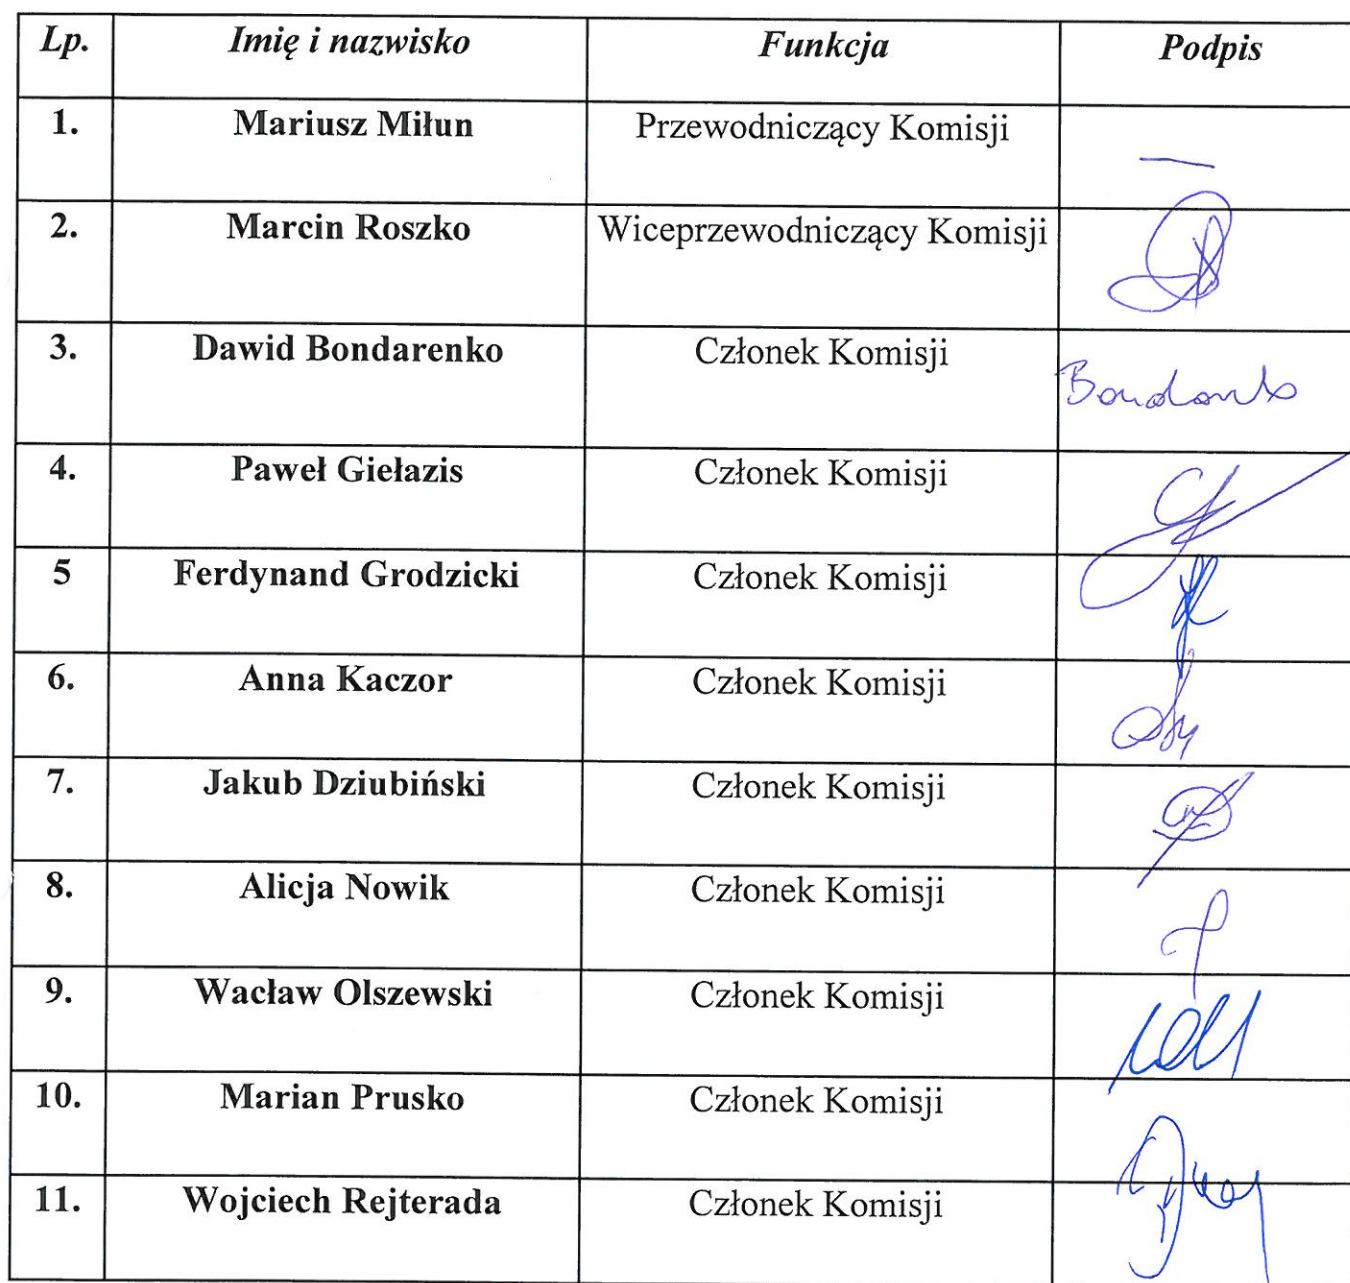 Lp. Imię i nazwisko Funkcja Podpis
1. Mariusz Miłun Przewodniczący Komisji —
2. Marcin Roszko Wiceprzewodniczący Komisji
3. Dawid Bondarenko Członek Komisji
4. Paweł Giełazis Członek Komisji
5 Ferdynand Grodzicki Członek Komisji
6. Anna Kaczor Członek Komisji
7. Jakub Dziubiński Członek Komisji
8. Alicja Nowik Członek Komisji
9. Wacław Olszewski Członek Komisji
10. Marian Prusko Członek Komisji
11. Wojciech Rejterada Członek Komisji